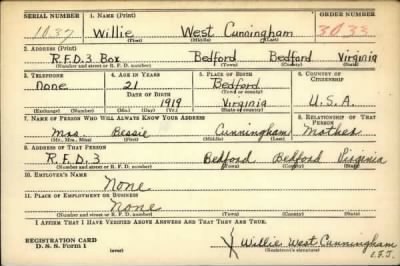 SERIAL NUMBER 1. NAME (Print) ORDER NUMBER
1037 Willie West Cunningham 3033
(First) (Middle) (Last)
2. ADDRESS (Print)
R.F.D. 3 Box Bedford Bedford Virginia
(Number and street or R. F. D. number) (Town) (County) (State)
3. TELEPHONE 4. AGE IN YEARS 5. PLACE OF BIRTH 6. COUNTRY OF CITIZENSHIP
None 21 Bedford
DATE OF BIRTH (Town or county)
1919 Virginia U.S.A.
(Exchange) (Number) (Mo.) (Day) (Yr.) (State or country)
7. NAME OF PERSON WHO WILL ALWAYS KNOW YOUR ADDRESS 8. RELATIONSHIP OF THAT PERSON
Mrs. Bessie Cunningham Mother
(Mr., Mrs., Miss) (First) (Middle) (Last)
9. ADDRESS OF THAT PERSON
R.F.D. 3 Bedford Bedford Virginia
(Number and street or R. F. D. number) (Town) (County) (State)
10. EMPLOYER'S NAME
None
11. PLACE OF EMPLOYMENT OR BUSINESS
None
(Number and street or R. F. D. number) (Town) (County) (State)
I AFFIRM THAT I HAVE VERIFIED ABOVE ANSWERS AND THAT THEY ARE TRUE.
REGISTRATION CARD
D. S. S. Form 1 (over) X Willie West Cunningham
(Registrant's signature)